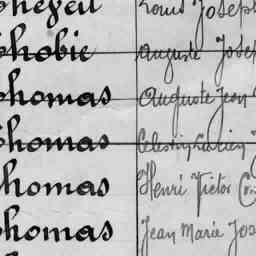 Louis Joseph
Phobie Auguste Josep
homas Auguste Jean
homas Celestin Lucien
homas Henri Victor
homas Jean Marie Jos